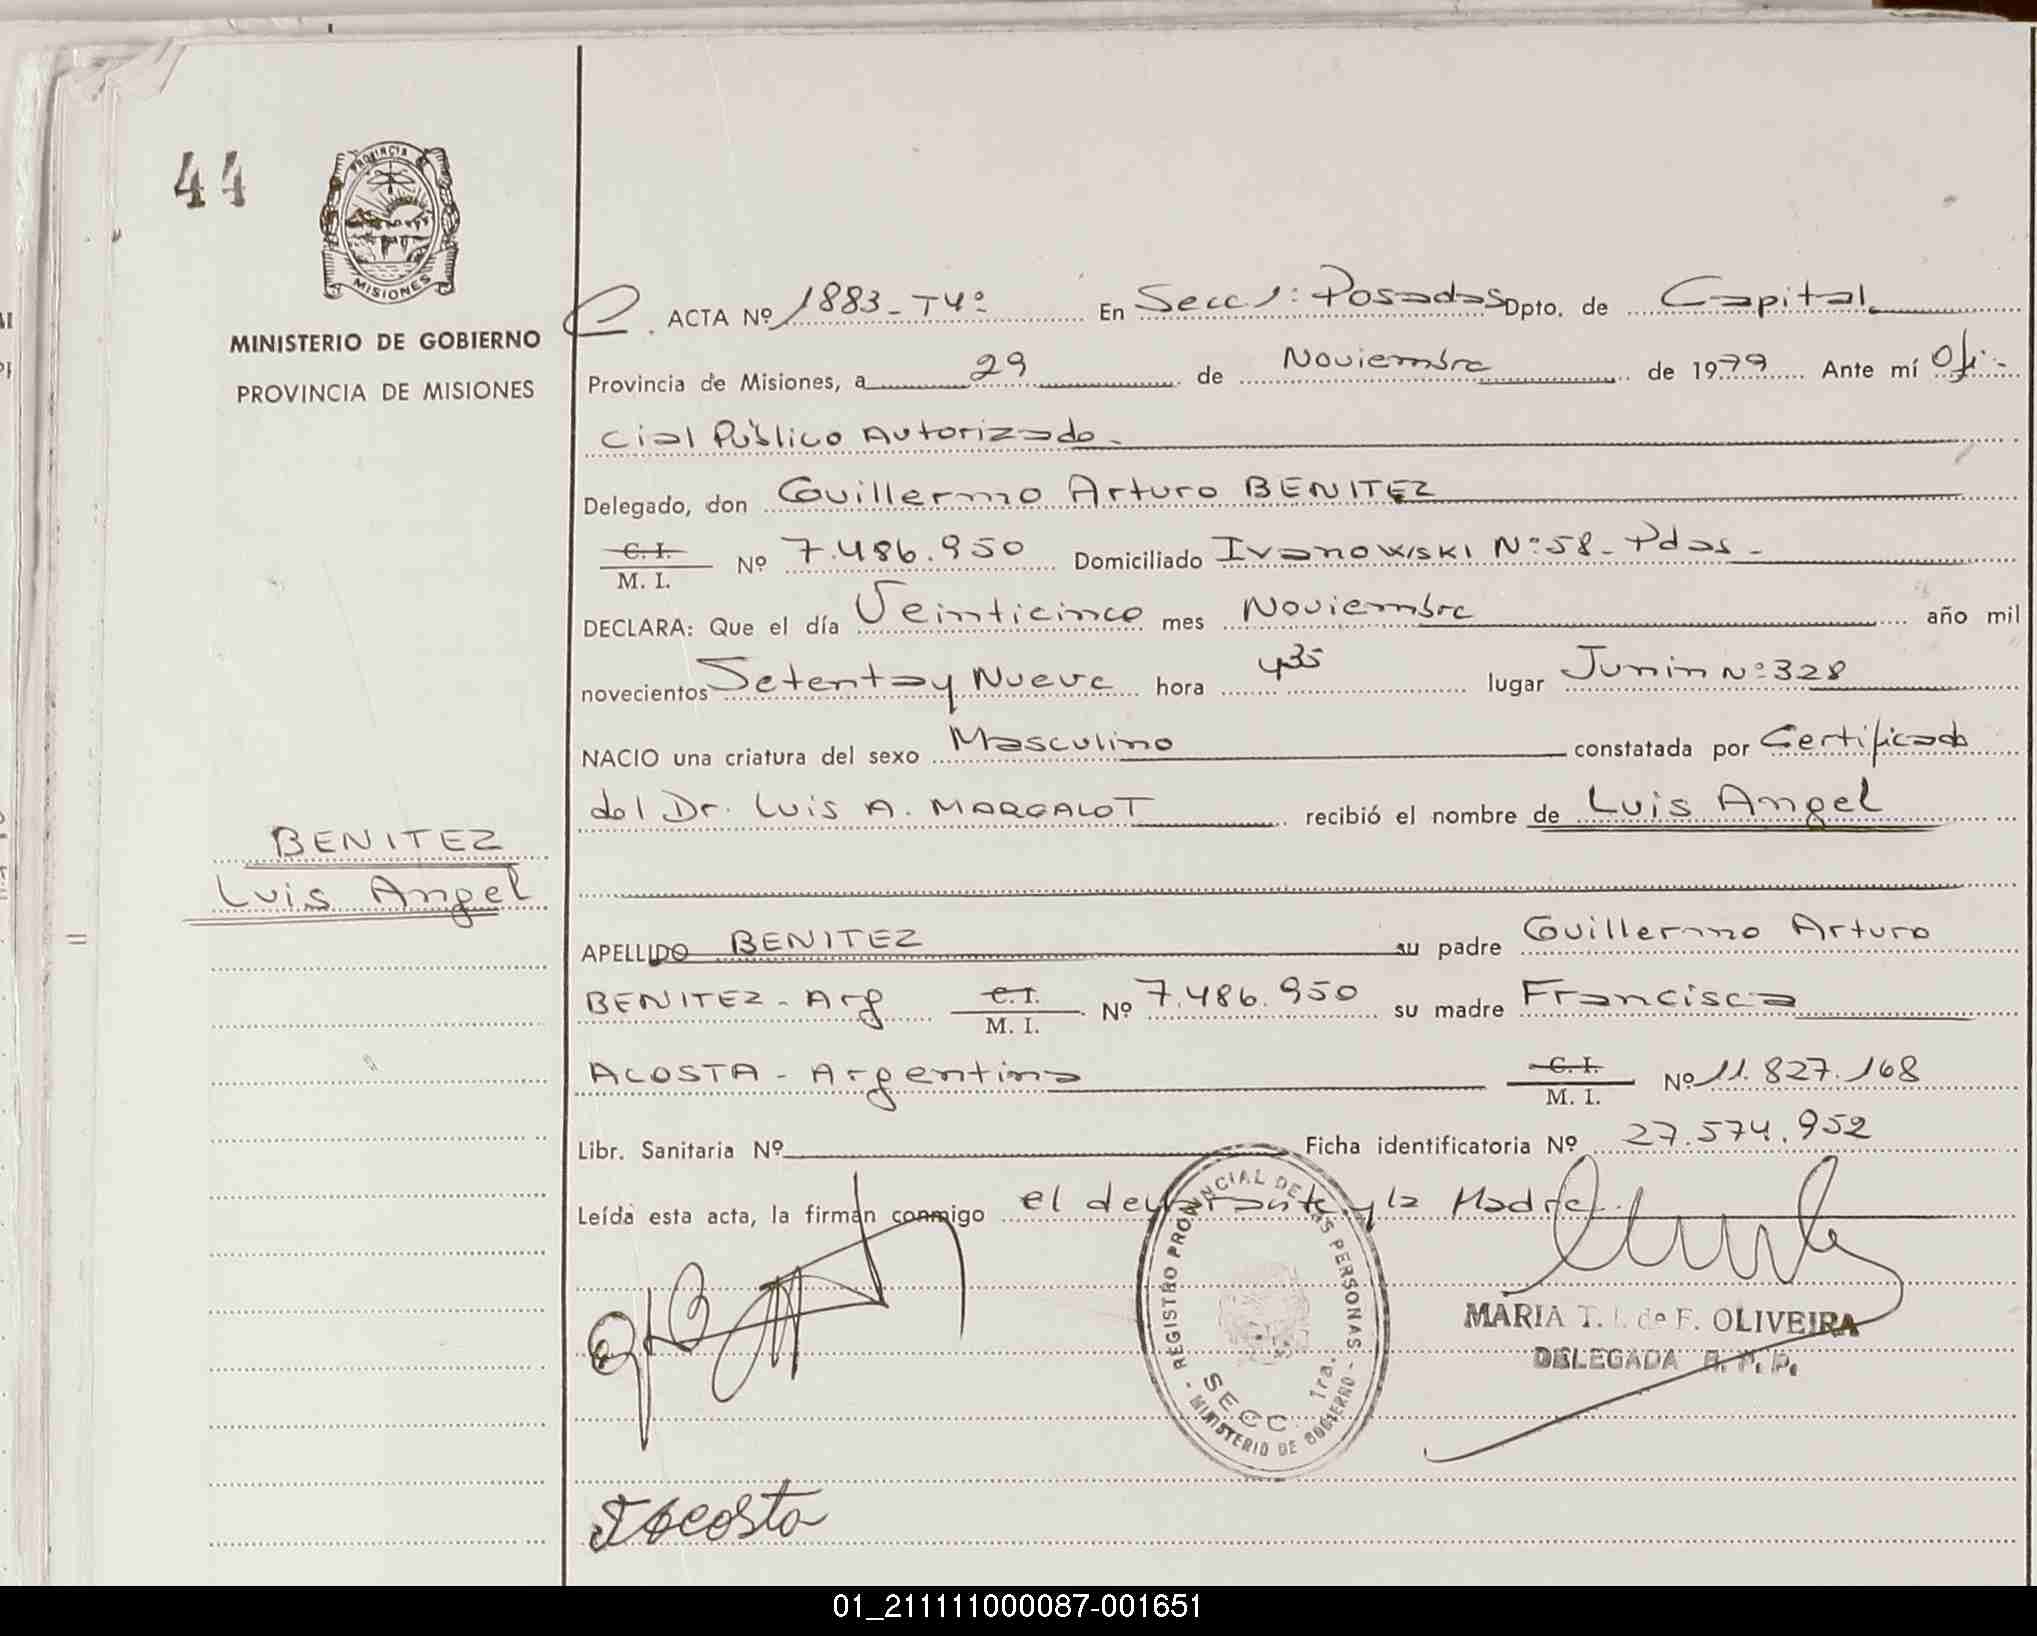 44
PROVINCIA
MISIONES
MINISTERIO DE GOBIERNO
PROVINCIA DE MISIONES
ACTA Nº 1883-T4º En Secc 1: Posadas Dpto. de Capital
Provincia de Misiones, a 29 de Noviembre de 1979 Ante mí Ofi-
cial Público Autorizado.
Delegado, don Guillermo Arturo BENITEZ
C. I.
M. I. Nº 7.486.950 Domiciliado Ivanowiski Nº:58- Pdas-
DECLARA: Que el día Veinticinco mes Noviembre año mil
novecientos Setenta y Nueve hora 4 35 lugar Junin Nº:328
NACIO una criatura del sexo Masculino constatada por Certificado
del Dr. Luis A. MARGALOT recibió el nombre de Luis Angel
BENITEZ
Luis Angel
APELLIDO BENITEZ su padre Guillermo Arturo
BENITEZ - Arg C. I.
M. I. Nº 7.486.950 su madre Francisca
ACOSTA - Argentina C. I.
M. I. Nº 11.827.168
Libr. Sanitaria Nº Ficha identificatoria Nº 27.574.952
Leída esta acta, la firman conmigo el declarante y la Madre.
REGISTRO PROVINCIAL DE LAS PERSONAS
SECC. 1ra.
MINISTERIO DE GOBIERNO
MARIA T. I. de F. OLIVEIRA
DELEGADA R. P. P.
F Acosta
01_211111000087-001651